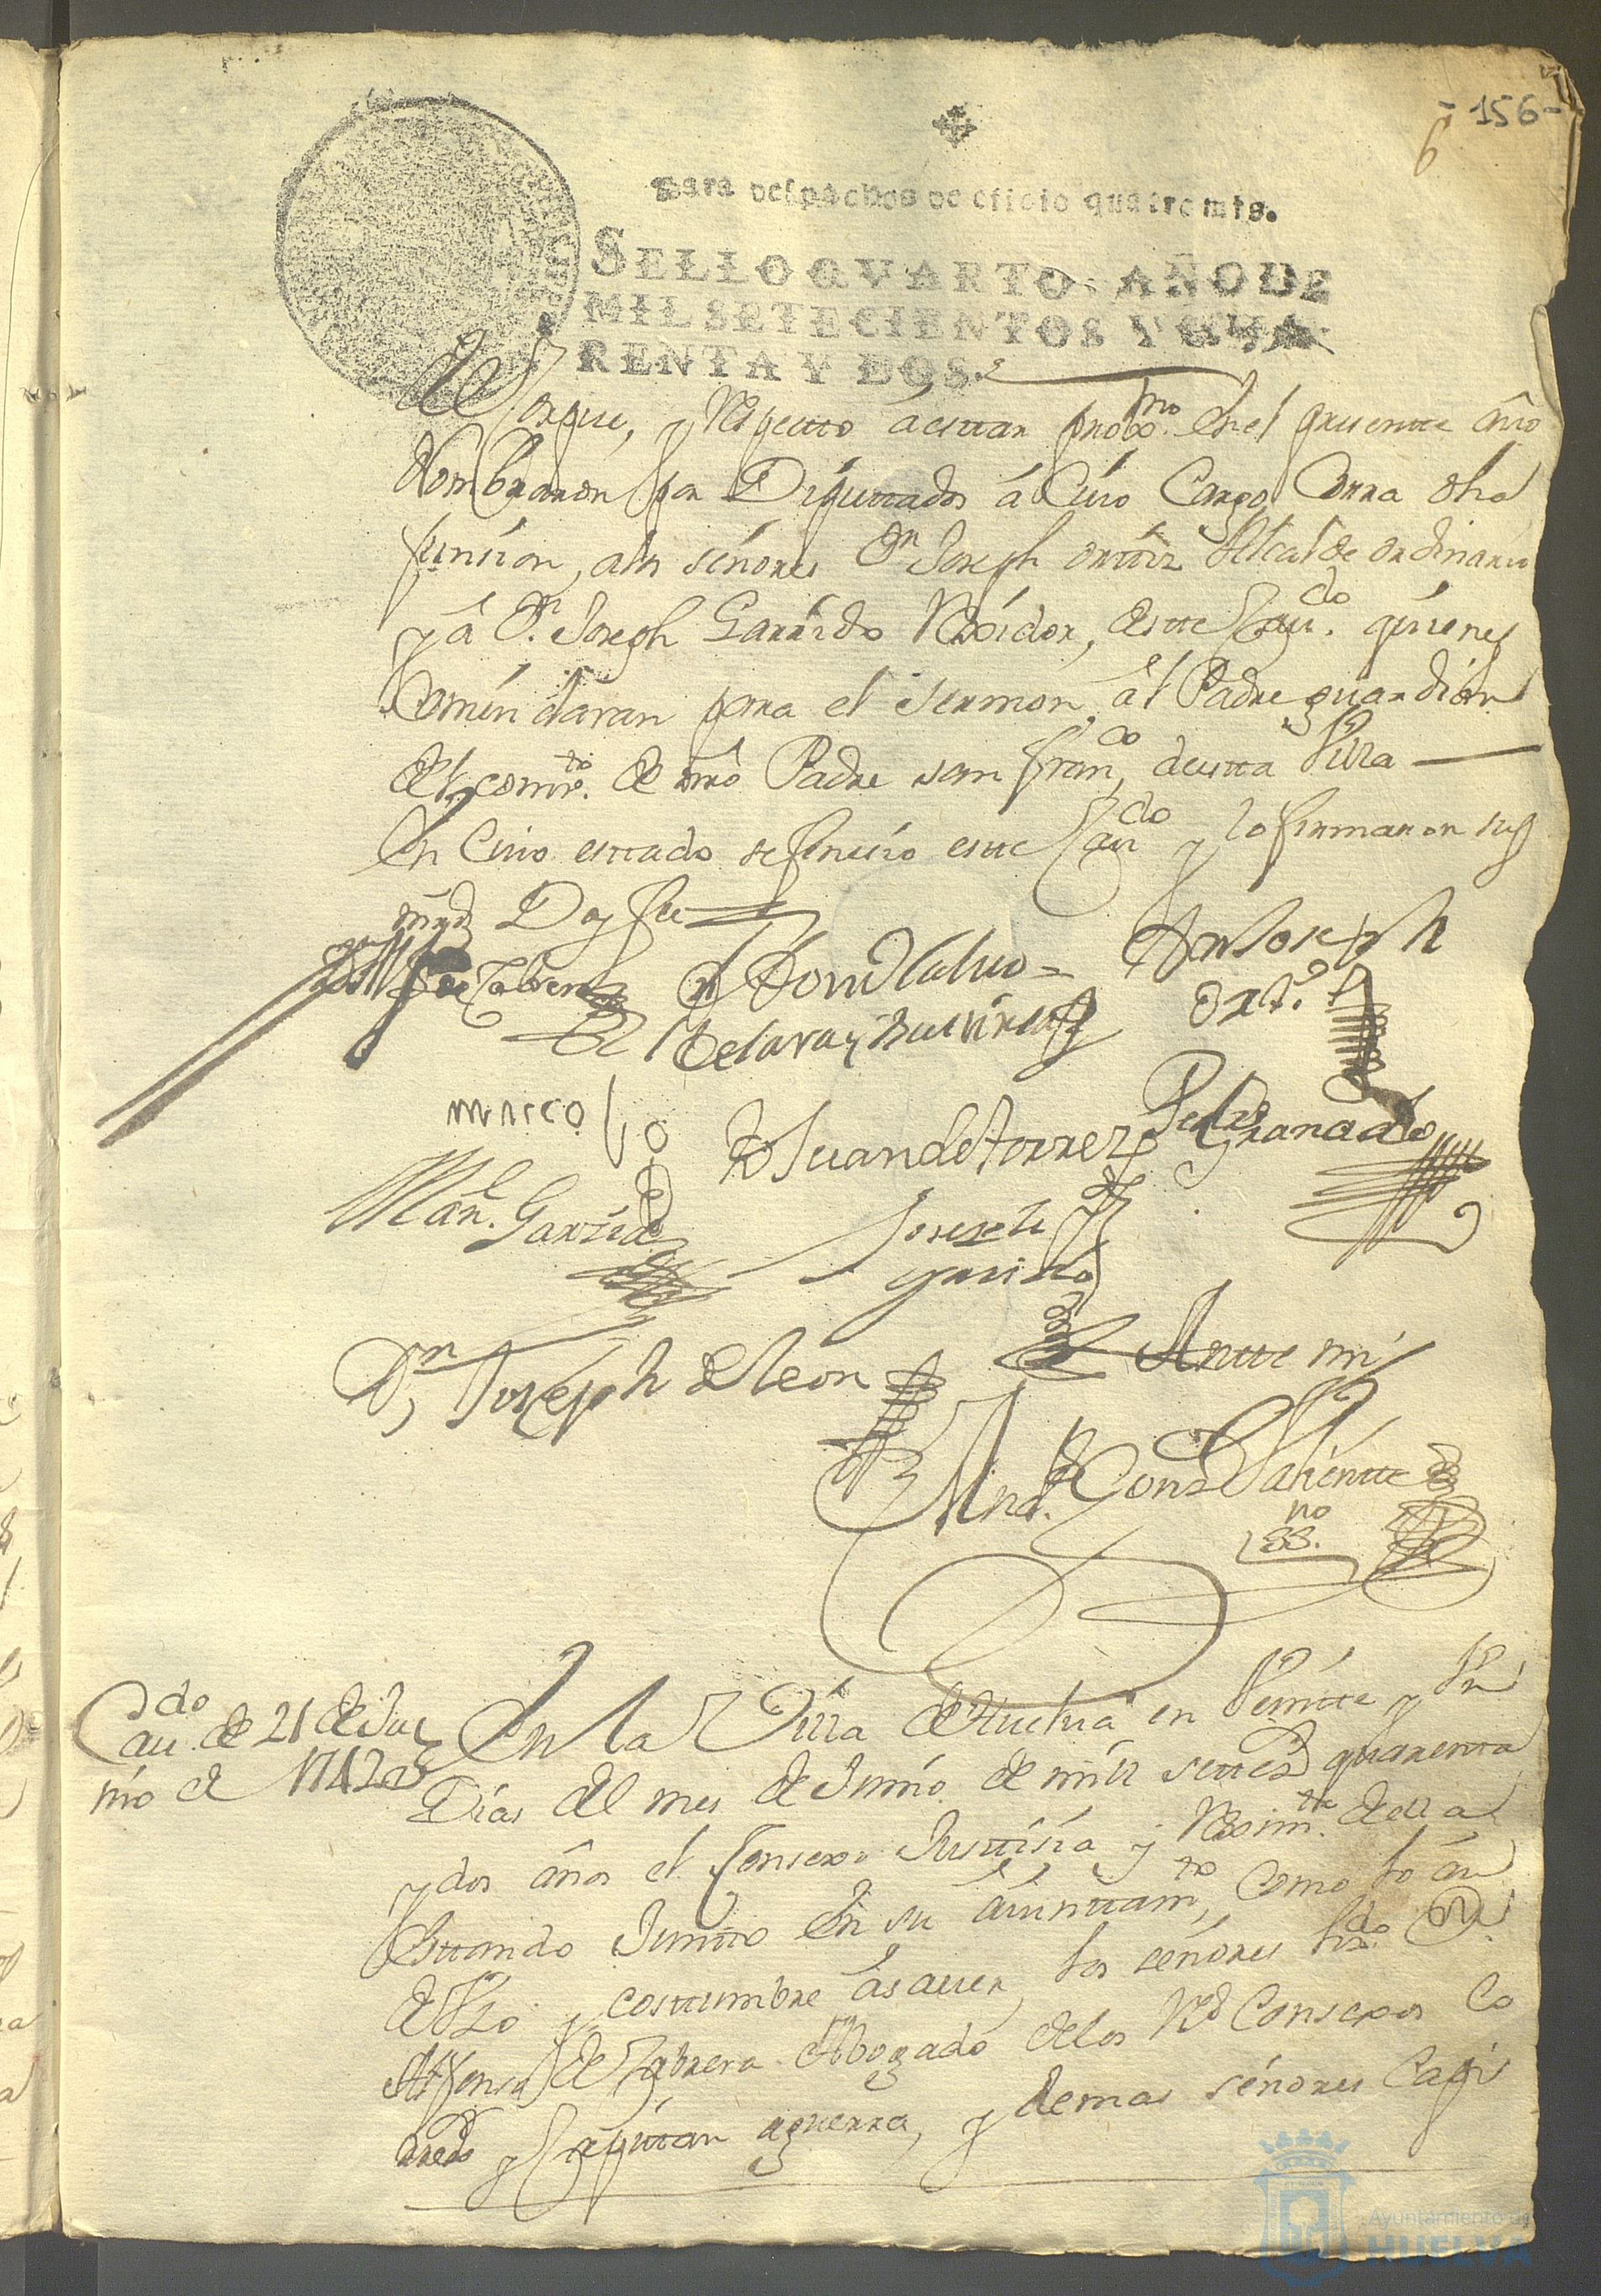 - 156 -
6
Para despachos de oficio quatro mrs.
SELLO QVARTO, AÑO DE
MIL SETECIENTOS Y QUA
RENTA Y DOS.
Porque, y Respecto a estar proxmo. En el presente año
Nombraron por Diputtados á Cuio Cargo Corra dha
funsion, a los señores Dn. Joseph orttiz Alcalde ordinario
y â Dn. Joseph Garrido Rexidor, deste Cavdo. quienes
Comendaran para el sermon, al Padre guardian
del comvto. de nrô Padre san franco, de esta Villa
En Cuio esttado se feneció este Cavdo y lo firmaron sus
mrds Doy fee
de Cabrera
Dn Joseph
Ortis
marco
Juan de torres
Pedro Granado
Manl. Garzia
Joseph
garrido
Dn Joseph de leon
Antte mi
Gonz Valientte
ssno.
Cavdo. de 21 de Ju
nio de 1742 as
En la Villa de Huelva en Veintte y Un
Dias del mes de Junio de mill settecs quarenta
y dos años el Consexo Justtisia y Reximto. della
Esttando Juntto En su aiunttamto, Como lo an
de Uzo y costtumbre asaver, los señores Lizdo. Dn.
Alfonso de Cabrera Abogado de los Rs Consexos Co
rredor y Capittan aguerra, y demas señores Capi
Ayuntamiento de
HUELVA